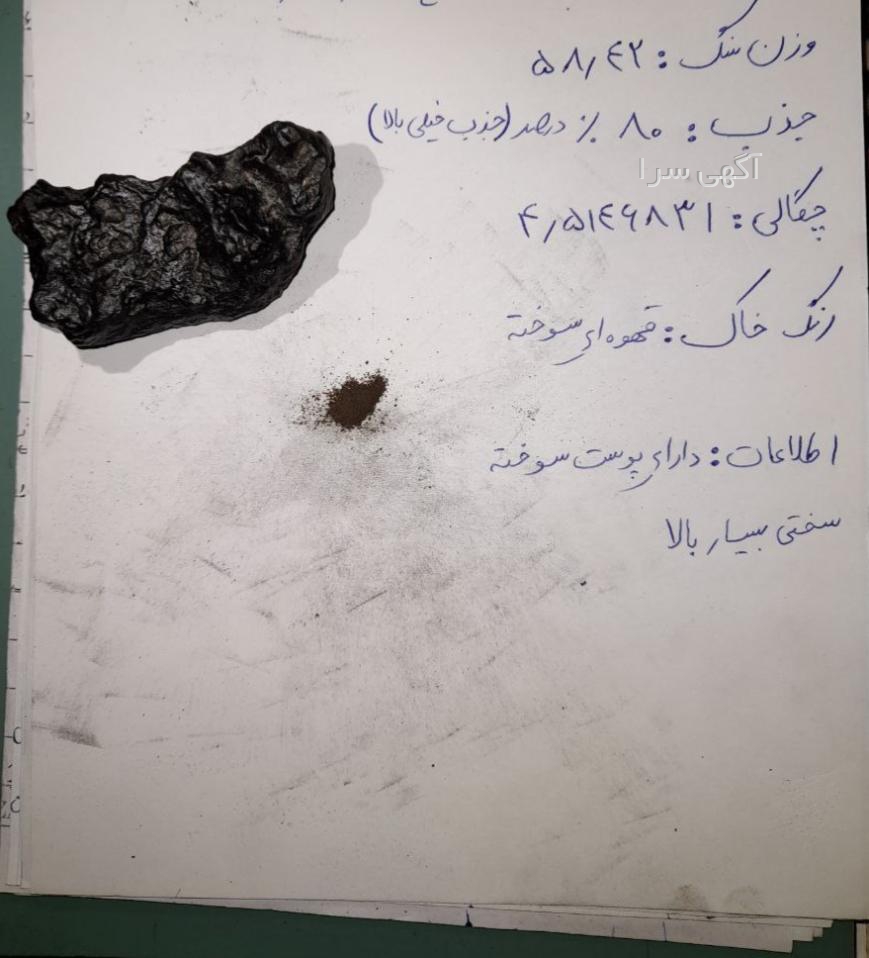 وزن سنگ : ۵۸٫۴۲
جذب : ۸۰ ٪ درصد (جذب خیلی بالا)
آگهی سرا
چگالی : ۴٫۵۱۴۶۸۳۱
رنگ خاک : قهوه ای سوخته
اطلاعات : دارای پوست سوخته
سختی بسیار بالا